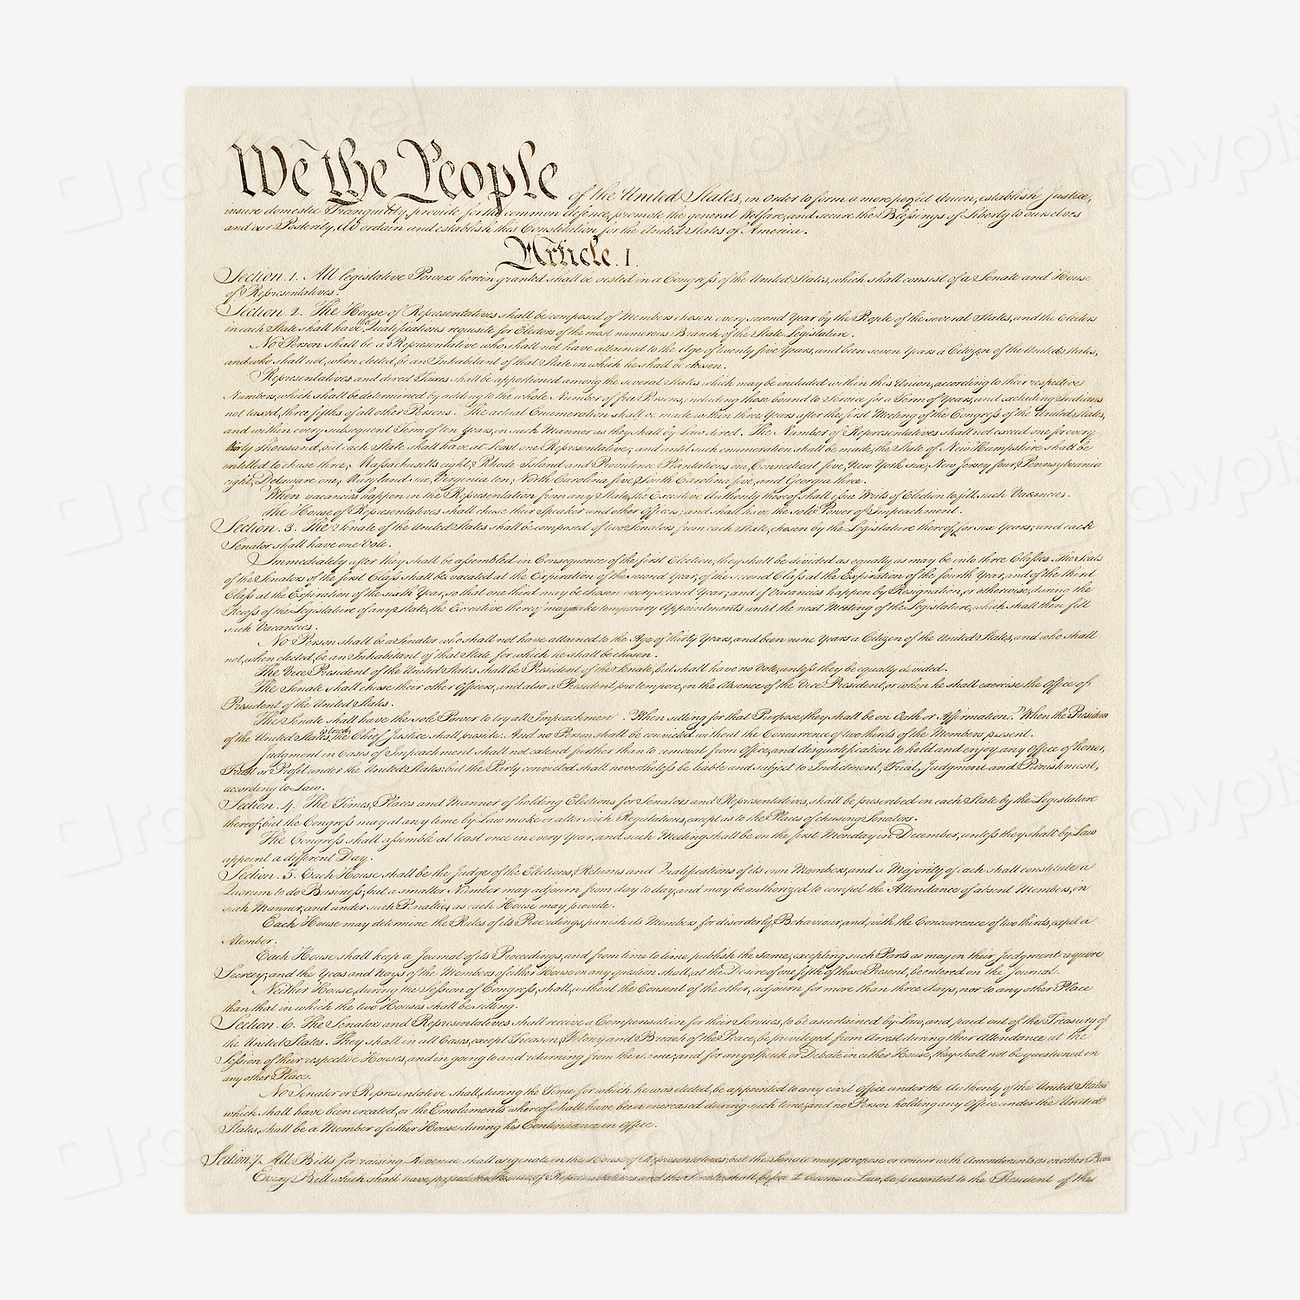 rawpixel
We the People of the United States, in order to form a more perfect Union, establish Justice,
insure domestic Tranquility, provide for the common defence, promote the general Welfare, and secure the Blessings of Liberty to ourselves
and our Posterity, do ordain and establish this Constitution for the United States of America.
Article. I.
Section. 1. All legislative Powers herein granted shall be vested in a Congress of the United States, which shall consist of a Senate and House
of Representatives.
Section. 2. The House of Representatives shall be composed of Members chosen every second Year by the People of the several States, and the Electors
in each State shall have the Qualifications requisite for Electors of the most numerous Branch of the State Legislature.
No Person shall be a Representative who shall not have attained to the Age of twenty five Years, and been seven Years a Citizen of the United States,
and who shall not, when elected, be an Inhabitant of that State in which he shall be chosen.
Representatives and direct Taxes shall be apportioned among the several States which may be included within this Union, according to their respective
Numbers, which shall be determined by adding to the whole Number of free Persons, including those bound to Service for a Term of Years, and excluding Indians
not taxed, three fifths of all other Persons. The actual Enumeration shall be made within three Years after the first Meeting of the Congress of the United States,
and within every subsequent Term of ten Years, in such Manner as they shall by Law direct. The Number of Representatives shall not exceed one for every
thirty Thousand, but each State shall have at Least one Representative; and until such enumeration shall be made, the State of New Hampshire shall be
entitled to chuse three, Massachusetts eight, Rhode Island and Providence Plantations one, Connecticut five, New York six, New Jersey four, Pennsylvania
eight, Delaware one, Maryland six, Virginia ten, North Carolina five, South Carolina five, and Georgia three.
When vacancies happen in the Representation from any State, the Executive Authority thereof shall issue Writs of Election to fill such Vacancies.
The House of Representatives shall chuse their Speaker and other Officers; and shall have the sole Power of Impeachment.
Section. 3. The Senate of the United States shall be composed of two Senators from each State, chosen by the Legislature thereof, for six Years; and each
Senator shall have one Vote.
Immediately after they shall be assembled in Consequence of the first Election, they shall be divided as equally as may be into three Classes. The Seats
of the Senators of the first Class shall be vacated at the Expiration of the second Year, of the second Class at the Expiration of the fourth Year, and of the third
Class at the Expiration of the sixth Year, so that one third may be chosen every second Year; and if Vacancies happen by Resignation, or otherwise, during the
Recess of the Legislature of any State, the Executive thereof may make temporary Appointments until the next Meeting of the Legislature, which shall then fill
such Vacancies.
No Person shall be a Senator who shall not have attained to the Age of thirty Years, and been nine Years a Citizen of the United States, and who shall
not, when elected, be an Inhabitant of that State for which he shall be chosen.
The Vice President of the United States shall be President of the Senate, but shall have no Vote, unless they be equally divided.
The Senate shall chuse their other Officers, and also a President pro tempore, in the Absence of the Vice President, or when he shall exercise the Office of
President of the United States.
The Senate shall have the sole Power to try all Impeachments. When sitting for that Purpose, they shall be on Oath or Affirmation. When the President
of the United States is tried, the Chief Justice shall preside: And no Person shall be convicted without the Concurrence of two thirds of the Members present.
Judgment in Cases of Impeachment shall not extend further than to removal from Office, and disqualification to hold and enjoy any Office of honor,
Trust or Profit under the United States: but the Party convicted shall nevertheless be liable and subject to Indictment, Trial, Judgment and Punishment,
according to Law.
Section. 4. The Times, Places and Manner of holding Elections for Senators and Representatives, shall be prescribed in each State by the Legislature
thereof; but the Congress may at any time by Law make or alter such Regulations, except as to the Places of chusing Senators.
The Congress shall assemble at least once in every Year, and such Meeting shall be on the first Monday in December, unless they shall by Law
appoint a different Day.
Section. 5. Each House shall be the Judge of the Elections, Returns and Qualifications of its own Members, and a Majority of each shall constitute a
Quorum to do Business; but a smaller Number may adjourn from day to day, and may be authorized to compel the Attendance of absent Members, in
such Manner, and under such Penalties as each House may provide.
Each House may determine the Rules of its Proceedings, punish its Members for disorderly Behaviour, and, with the Concurrence of two thirds, expel a
Member.
Each House shall keep a Journal of its Proceedings, and from time to time publish the same, excepting such Parts as may in their Judgment require
Secrecy; and the Yeas and Nays of the Members of either House on any question shall, at the Desire of one fifth of those Present, be entered on the Journal.
Neither House, during the Session of Congress, shall, without the Consent of the other, adjourn for more than three days, nor to any other Place
than that in which the two Houses shall be sitting.
Section. 6. The Senators and Representatives shall receive a Compensation for their Services, to be ascertained by Law, and paid out of the Treasury of
the United States. They shall in all Cases, except Treason, Felony and Breach of the Peace, be privileged from Arrest during their Attendance at the
Session of their respective Houses, and in going to and returning from the same; and for any Speech or Debate in either House, they shall not be questioned in
any other Place.
No Senator or Representative shall, during the Time for which he was elected, be appointed to any civil Office under the Authority of the United States,
which shall have been created, or the Emoluments whereof shall have been encreased during such time; and no Person holding any Office under the United
States, shall be a Member of either House during his Continuance in Office.
Section. 7. All Bills for raising Revenue shall originate in the House of Representatives; but the Senate may propose or concur with Amendments as on other Bills.
Every Bill which shall have passed the House of Representatives and the Senate, shall, before it become a Law, be presented to the President of the